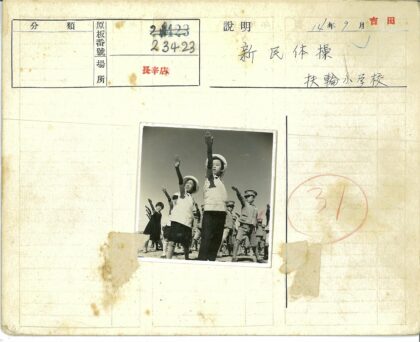 分類
原板番號
23423
場所
長辛店
説明
14年9月
吉田
新民体操
扶輪小学校
31